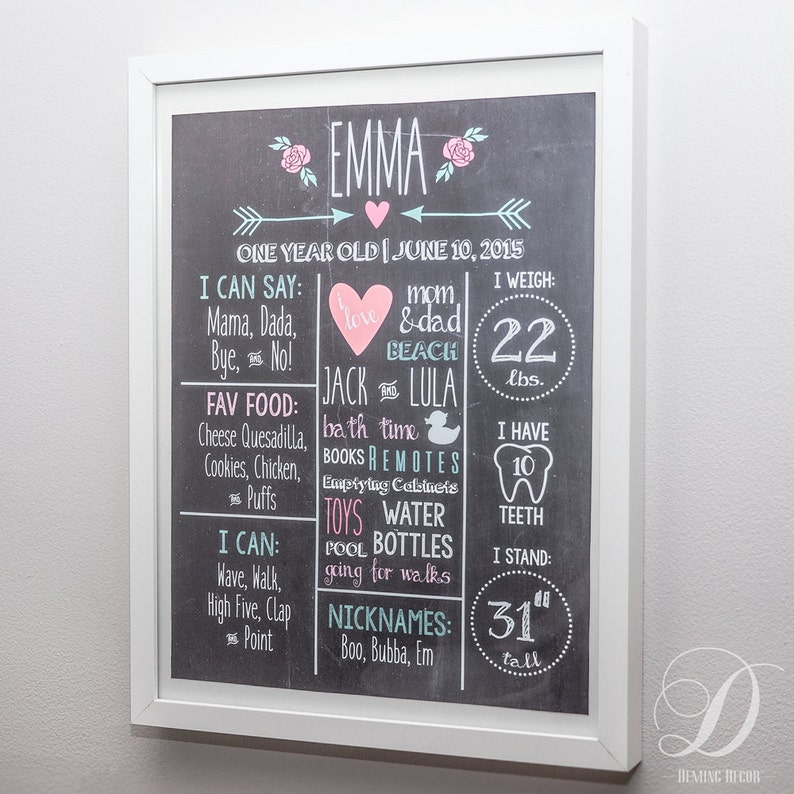 EMMA
ONE YEAR OLD | JUNE 10, 2015
I CAN SAY:
Mama, Dada,
Bye, AND No!
FAV FOOD:
Cheese Quesadilla,
Cookies, Chicken,
AND Puffs
I CAN:
Wave, Walk,
High Five, Clap
AND Point
i love
mom
& dad
BEACH
JACK AND LULA
bath time
BOOKS REMOTES
Emptying Cabinets
TOYS WATER
POOL BOTTLES
going for walks
NICKNAMES:
Boo, Bubba, Em
I WEIGH:
22
lbs.
I HAVE
10
TEETH
I STAND:
31"
tall
D
DEMING DECOR